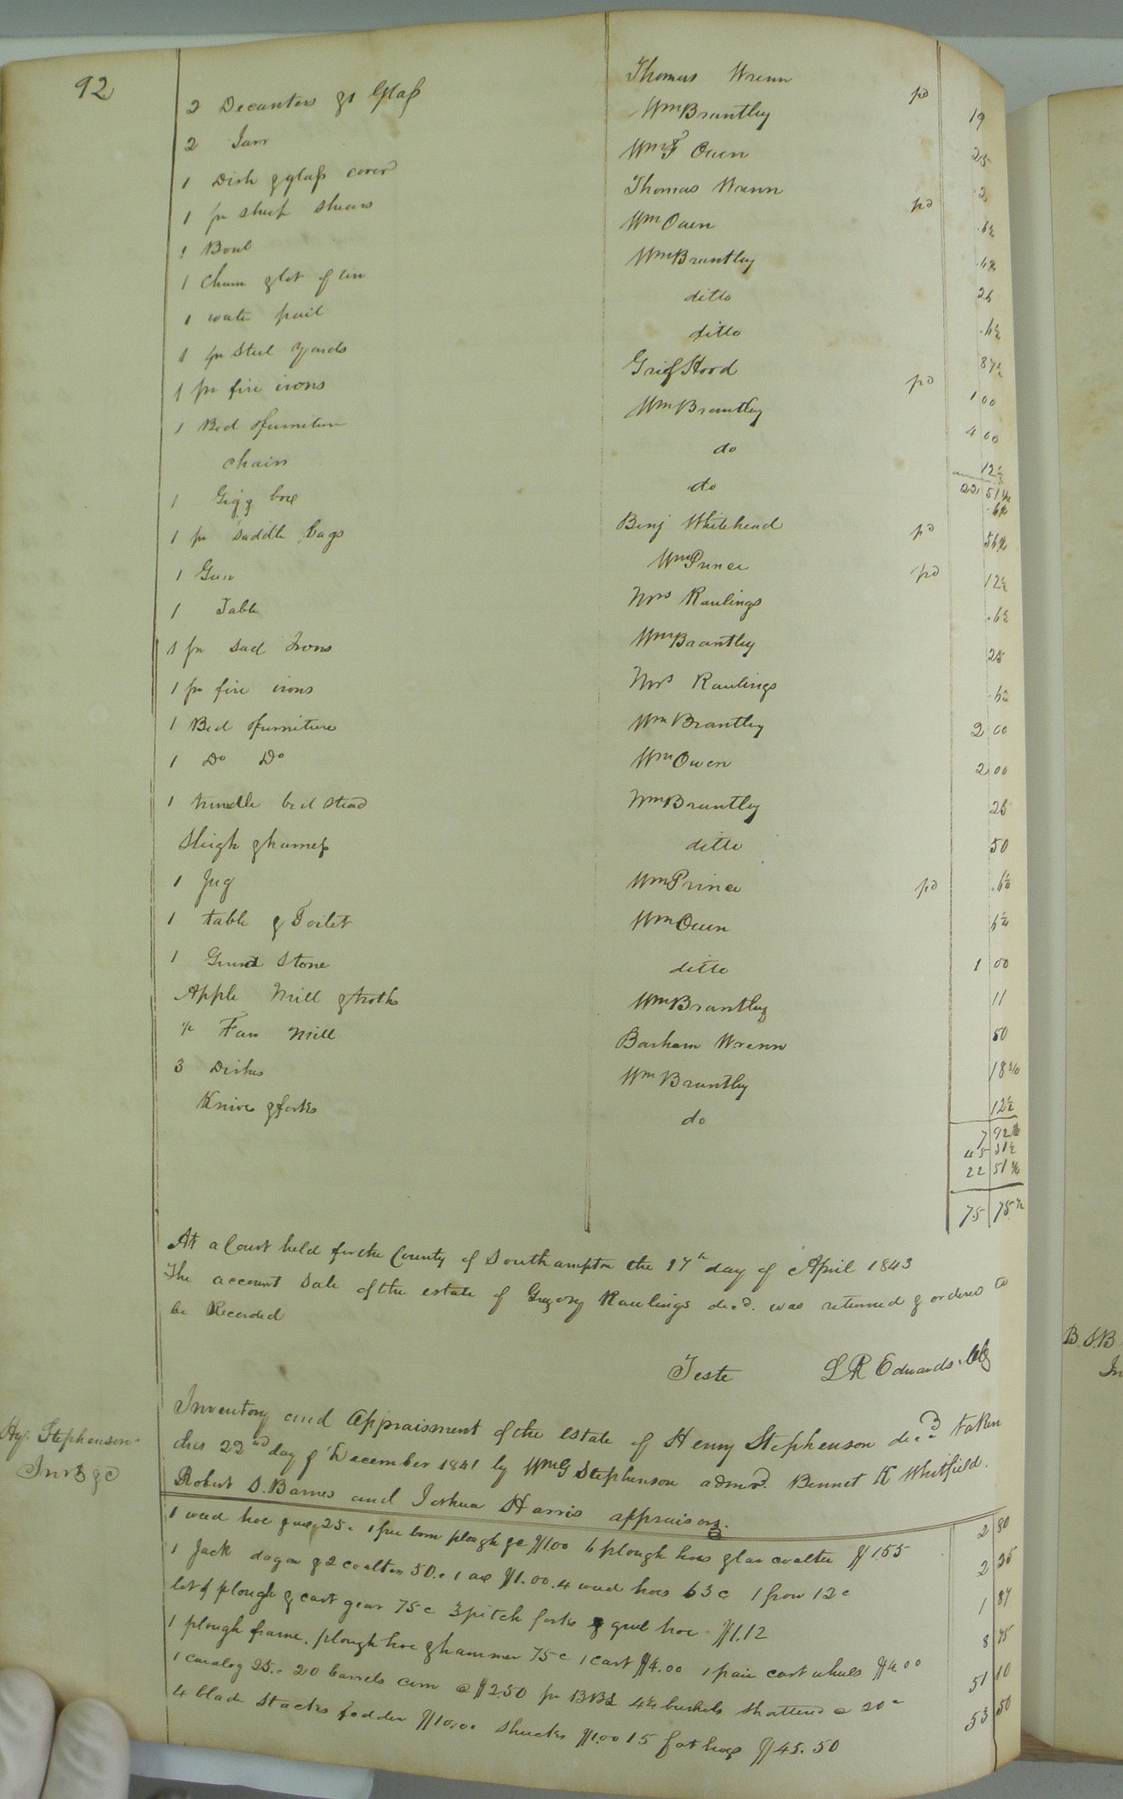 92
Thomas Wrenn
2 Decanters & Glass WmBrantley pd 19
2 Jarr Wm Owen 25
1 Dish & glass cover Thomas Wrenn 2
1 pr sheep shears WmOwen pd .6¼
1 Boul WmBrantley .6¼
1 Churn & lot of tin ditto 25
1 wate pail ditto .6¼
1 pr Steel Yards Grief Hood 87½
1 pr fire irons WmBrantley pd 1 00
1 Bed &furniture do 4 00
chairs do 12½
22 51¼
1 Gigg box Benj Whitehead .6¼
1 pr saddle bags WmPrince pd 56¼
1 Gun Mrs Rawlings pd 12½
1 Table WmBrantley .6¼
1 pr Sad Irons Mrs Rawlings 25
1 pr fire irons WmBrantley
1 Bed &furniture WmOwen 2 00
1 Do Do WmBrantley 2 00
1 trundle bed stead ditto 25
Sleigh & harness WmPrince 50
1 Jug WmOwen pd .6¼
1 table & Toilet ditto 6¼
1 Grind Stone WmBrantley 1 00
Apple Mill & troths Barham Wrenn 11
½ Fan Mill WmBrantley 50
3 Dishes do 18¾
Knives &forks 12½
7 92
45 31¼
22 51¼
75 75½
At a Court held for the County of Southampton the 17th day of April 1843
The account Sale of the estate of Gregory Rawlings decd. was returned & ordered to
be Recorded
Teste L R Edwards Clk
B. S. B
In
Hy. Stephenson
Invt &c
Inventory and Appraisment of the estate of Henry Stephenson decd taken
this 22nd day of December 1841 by WmG Stephenson admr. Bennet K Whitfield.
Robert S. Barnes and Joshua Harris appraisors.
1 weed hoe & axe 25c 1 free born plough &c $1.00 6 plough hoes & law coulter $1.55 2 80
1 Jack dagon & 2 coulters 50.c 1 axe $1.00. 4 weed hoes 63c 1 frow 12c 2 25
lot of plough & cart gear 75c 3 pitch forks & grub hoe $1.12 1 87
1 plough frame. plough hoe & hammer 75c 1 cart $4.00 1 pair cart wheels $4.00 8 75
1 caralog 25.c 20 barrels corn @ $2.50 pr BBL 4½ bushels shattered @ 20c 51 10
4 blade stacks fodder $10.00 shucks $1.00 15 fat hogs $45.50 53 50